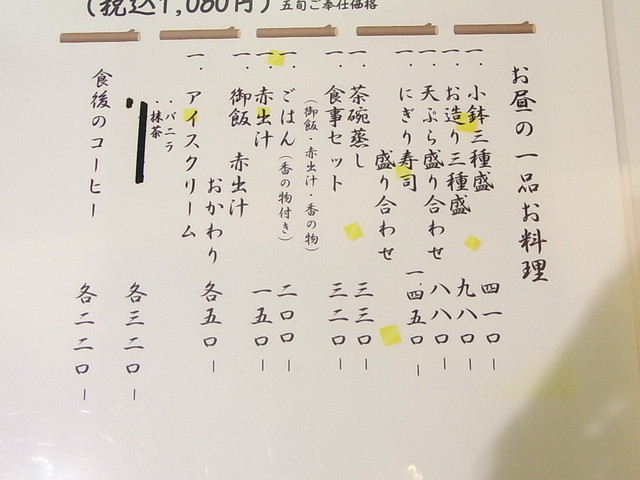 (税込1,080円) 五旬ご奉仕価格
お昼の一品お料理
一. 小鉢三種盛 四一〇ー
一. お造り三種盛 九八〇ー
一. 天ぷら盛り合わせ 八八〇ー
一. にぎり寿司
盛り合わせ 一.四五〇ー
一. 茶碗蒸し 三三〇ー
一. 食事セット 三二〇ー
(御飯・赤出汁・香の物)
一. ごはん(香の物付き) 二〇〇ー
一. 赤出汁 一五〇ー
一. 御飯 赤出汁
おかわり 各五〇ー
一. アイスクリーム
・バニラ
・抹茶
各三二〇ー
食後のコーヒー 各二二〇ー